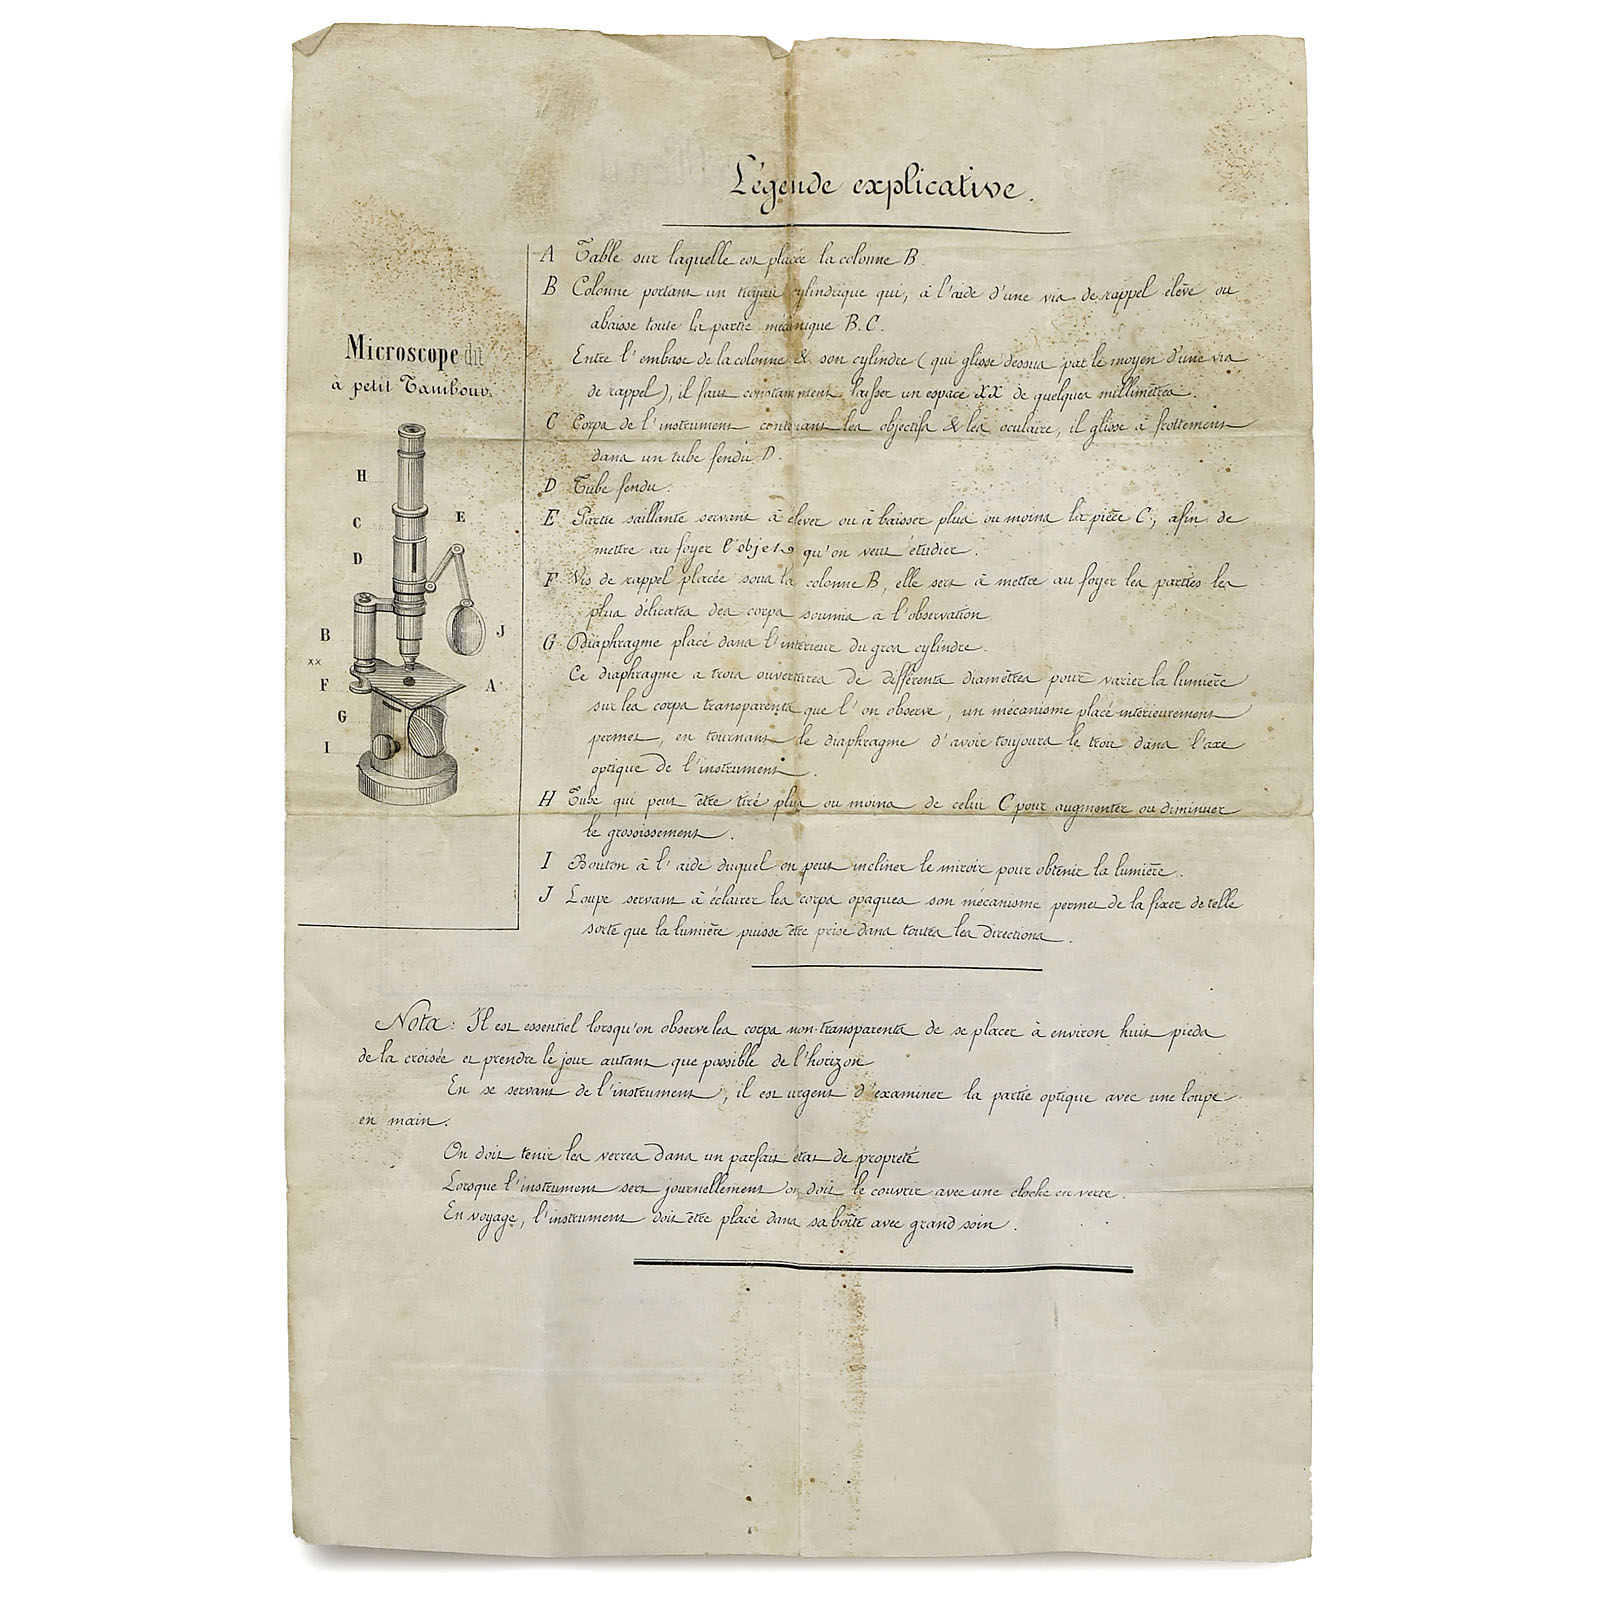 Légende explicative.
A Table sur laquelle est placée la colonne B.
B Colonne portant un tuyau cylindrique qui, à l'aide d'une vis de rappel élève ou
abaisse toute la partie mécanique B.C.
Entre l'embase de la colonne & son cylindre (qui glisse dessus par le moyen d'une vis
de rappel), il faut constamment laisser un espace XX de quelques millimètres.
C Corps de l'instrument contenant les objectifs & les oculaire, il glisse à frottement
dans un tube fendu D.
D Tube fendu.
E Partie saillante servant à élever ou à baisser plus ou moins la pièce C, afin de
mettre au foyer l'objet qu'on veut étudier.
F Vis de rappel placée sous la colonne B, elle sert à mettre au foyer les parties les
plus délicates des corps soumis à l'observation
G Diaphragme placé dans l'intérieur du gros cylindre.
Ce diaphragme a trois ouvertures de différents diamètres pour varier la lumière
sur les corps transparents que l'on observe, un mécanisme placé intérieurement
permet, en tournant le diaphragme d'avoir toujours le trou dans l'axe
optique de l'instrument.
H Tube qui peut être tiré plus ou moins de celui C pour augmenter ou diminuer
le grossissement.
I Bouton à l'aide duquel on peut incliner le miroir pour obtenir la lumière.
J Loupe servant à éclairer les corps opaques son mécanisme permet de la fixer de telle
sorte que la lumière puisse être prise dans toutes les directions.
Microscope dit
à petit Tambour.
H
C
E
D
B
J
xx
F
A
G
I
Nota: Il est essentiel lorsqu'on observe les corps non-transparents de se placer à environ huit pieds
de la croisée et prendre le jour autant que possible de l'horizon
En se servant de l'instrument, il est urgent d'examiner la partie optique avec une loupe
en main.
On doit tenir les verres dans un parfait état de propreté
Lorsque l'instrument sert journellement on doit le couvrir avec une cloche en verre.
En voyage, l'instrument doit être placé dans sa boîte avec grand soin.